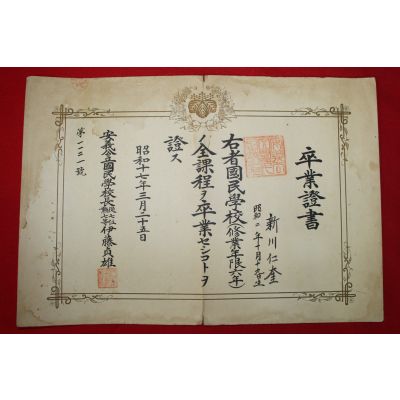 卒業證書
新川仁奎
昭和二年十月十九日生
右者國民學校(修業年限六年)
ノ全課程ヲ卒業セシコトヲ
證ス
昭和十七年三月二十五日
安義公立國民學校長
伊藤貞雄
第一二一號